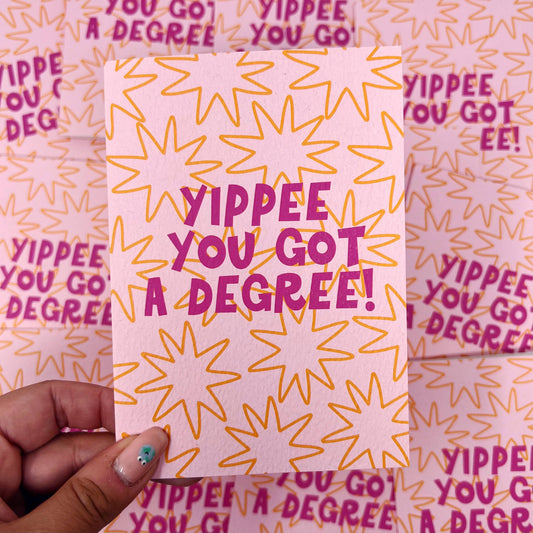 YIPPEE
YOU GOT
A DEGREE!
A DEGREE
YIPPEE
YOU
DEGR
YIPPEE
YOU GOT
EE!
YIPPEE
YOU GOT
A DEGREE!
YIPPEE
YOU GOT
DEGREE
YIPPEE
YOU GOT
DEGREE
YIPPEE
YOU GOT
A DEGREE
YIPPEE
YOU GO
A DEGREE
YOU GOT
A DEGREE!
YIPPEE
YOU GOT
A DEGREE